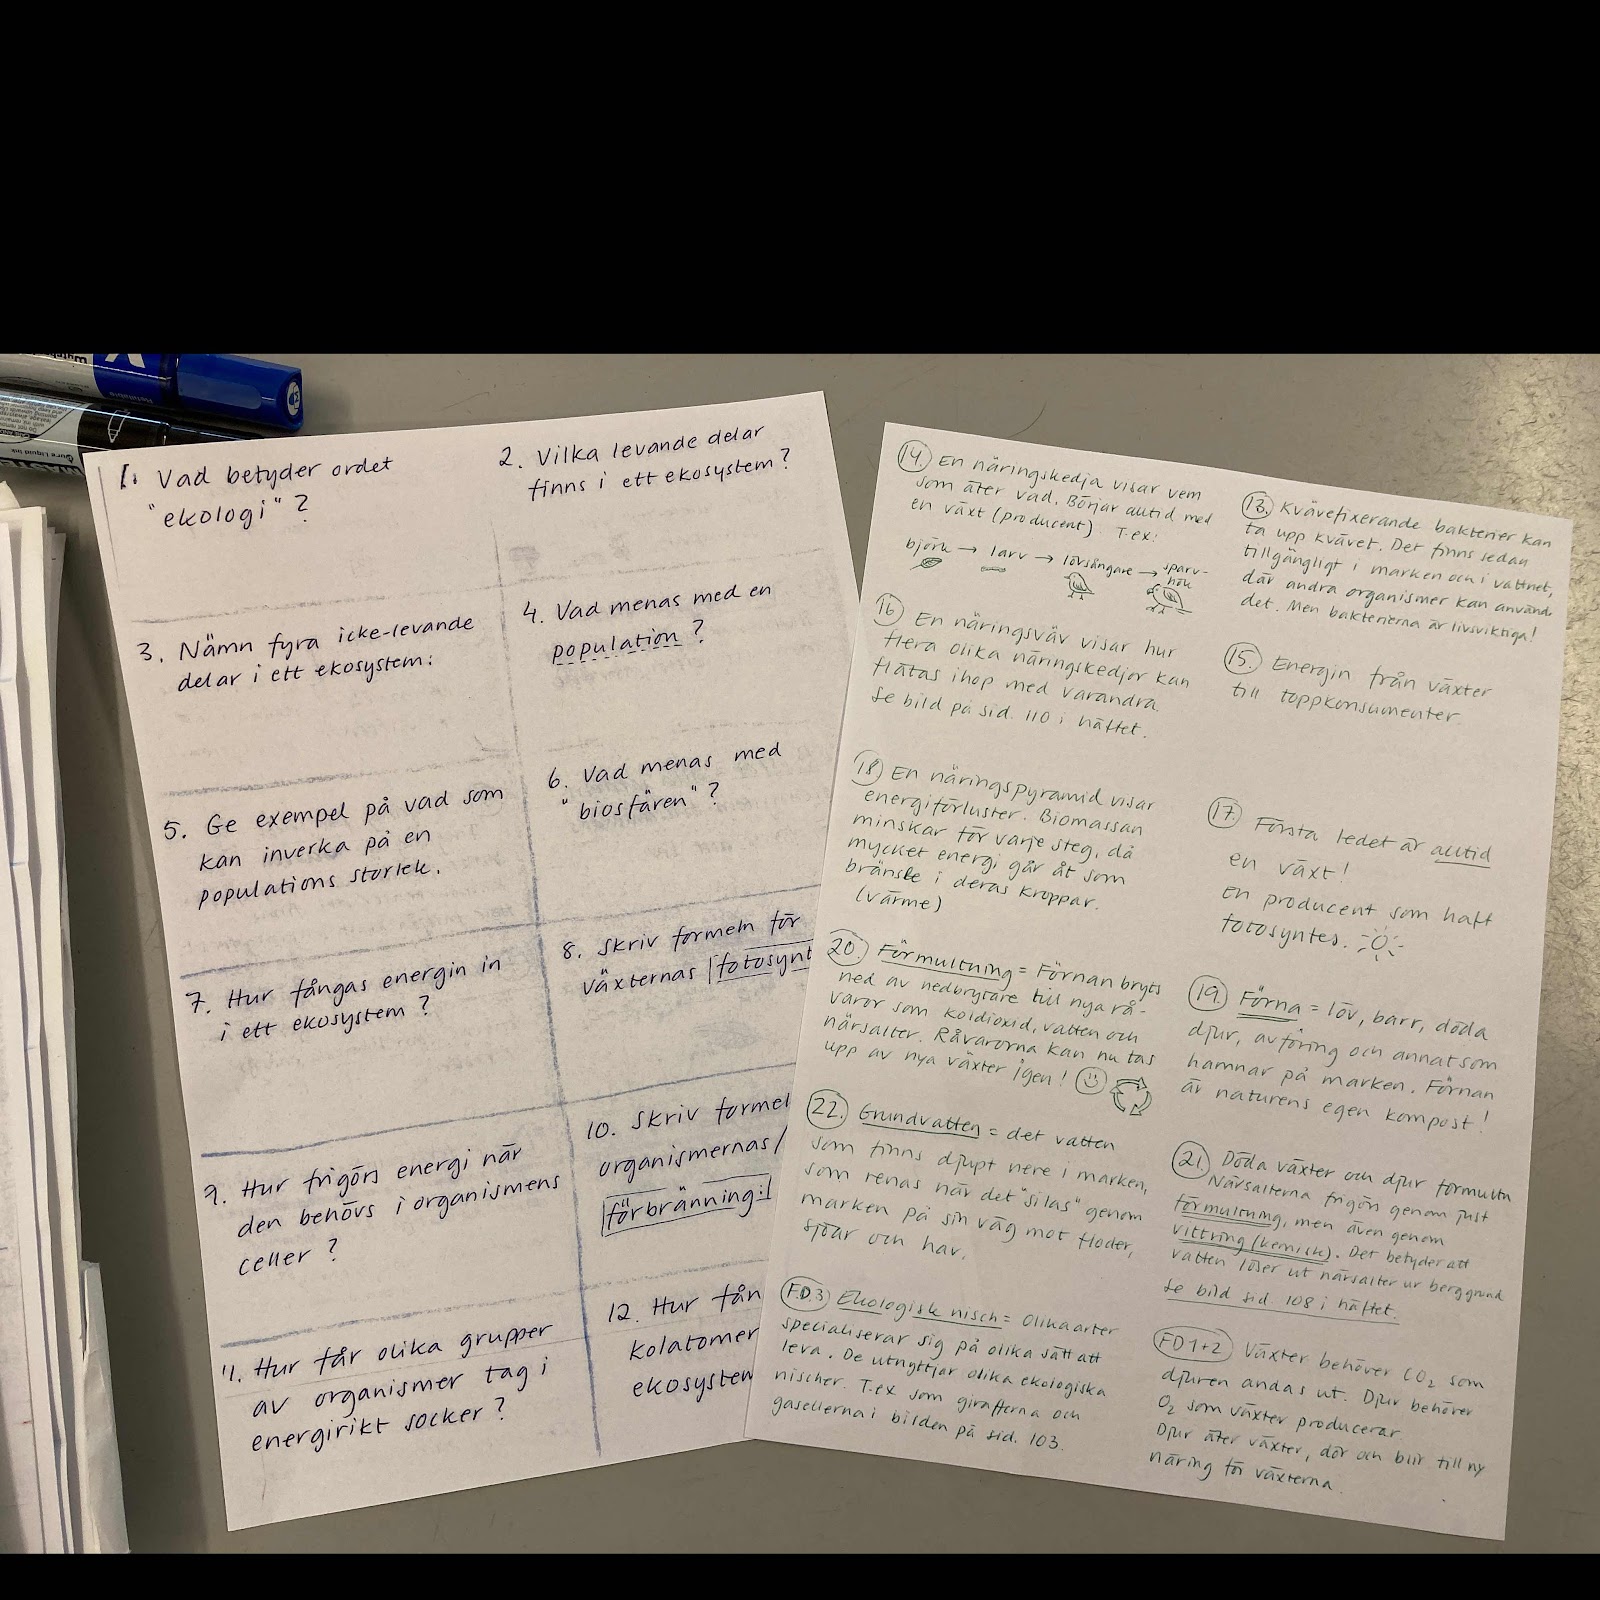 1. Vad betyder ordet
"ekologi"?
2. Vilka levande delar
finns i ett ekosystem?
3. Nämn fyra icke-levande
delar i ett ekosystem:
4. Vad menas med en
population?
5. Ge exempel på vad som
kan inverka på en
populations storlek.
6. Vad menas med
"biosfären"?
7. Hur fångas energin in
i ett ekosystem?
8. Skriv formeln för
växternas fotosynt
9. Hur frigörs energi när
den behövs i organismens
celler?
10. Skriv formel
organismernas/
förbränning:
11. Hur får olika grupper
av organismer tag i
energirikt socker?
12. Hur fån
kolatomer
ekosystem
14. En näringskedja visar vem
som äter vad. Börjar alltid med
en växt (producent). T.ex:
björk → larv → lövsångare → sparv-
hök
13. Kvävefixerande bakterier kan
ta upp kvävet. Det finns sedan
tillgängligt i marken och i vattnet,
där andra organismer kan använda
det. Men bakterierna är livsviktiga!
16. En näringsväv visar hur
flera olika näringskedjor kan
flätas ihop med varandra.
Se bild på sid. 110 i häftet.
15. Energin från växter
till toppkonsumenter.
18. En näringspyramid visar
energiförluster. Biomassan
minskar för varje steg, då
mycket energi går åt som
bränsle i deras kroppar.
(värme)
17. Första ledet är alltid
en växt!
En producent som haft
fotosyntes.
20. Förmultning = Förnan bryts
ned av nedbrytare till nya rå-
varor som koldioxid, vatten och
närsalter. Råvarorna kan nu tas
upp av nya växter igen!
19. Förna = löv, barr, döda
djur, avföring och annat som
hamnar på marken. Förnan
är naturens egen kompost!
22. Grundvatten = det vatten
som finns djupt nere i marken,
som renas när det "silas" genom
marken på sin väg mot floder,
sjöar och hav.
21. Döda växter och djur förmultn
Närsalterna frigörs genom just
förmultning, men även genom
vittring (kemisk). Det betyder att
vatten löser ut närsalter ur berggrund
Se bild sid. 108 i häftet.
F.D.3 Ekologisk nisch = Olika arter
specialiserar sig på olika sätt att
leva. De utnyttjar olika ekologiska
nischer. T.ex som girafferna och
gasellerna i bilden på sid. 103.
FD 1+2 Växter behöver CO2 som
djuren andas ut. Djur behöver
O2 som växter producerar.
Djur äter växter, dör och blir till ny
näring för växterna.